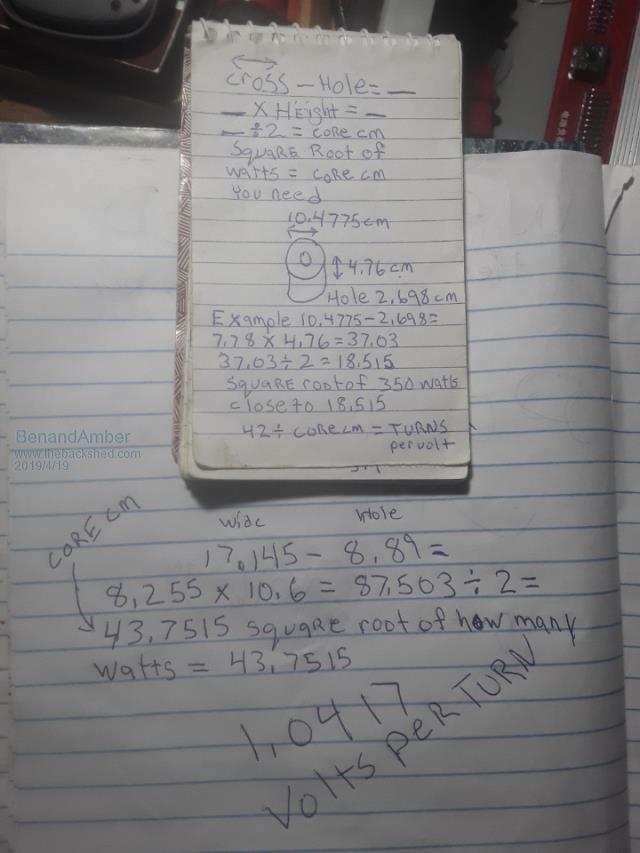 Cross - Hole = _
_ X Height = _
_ ÷ 2 = core cm
Square Root of
watts = core cm
You need
10.4775cm
4.76 cm
Hole 2.698 cm
Example 10.4775 - 2.698 =
7.78 x 4.76 = 37.03
37.03 ÷ 2 = 18.515
Square root of 350 watts
close to 18.515
42 ÷ core cm = TURNS
per volt
BenandAmber
www.thebackshed.com
2019/4/19
CORE CM
wide Hole
17.145 - 8.89 =
8.255 x 10.6 = 87.503 ÷ 2 =
43.7515 square root of how many
watts = 43.7515
1.0417
Volts PER TURN